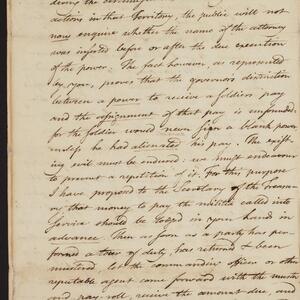 during the
actions in that Territory, the public will not
now enquire whether the name of the attorney
was inserted before or after the due execution
of the power. The fact however, as represented
by you, proves that the governor's distinction
between a power to receive a soldiers pay
and the assignment of that pay is unfounded;
for the soldier would never sign a blank power
unless he had alienated his pay. The exist-
ing evil must be endured; we must endeavour
to prevent a repetition of it. For this purpose
I have proposed to the Secretary of the Treasu-
ry that money to pay the militia called into
service should be lodged in your hands in
advance. Then as soon as a party has per-
formed a tour of duty has returned & been
mustered, let the commanding officer or other
reputable agent come forward with the muster
and pay roll, receive the amount due, and